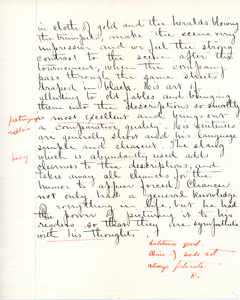 in cloth of gold and the heralds blowing
the trumpets, make the scene very
impressive and we feel the strong
contrast to the scene after the
tournament, when the company
pass through the same streets
draped in black. His art in
alluding to old fables and bringing
them into the descriptions so smoothly
is most excellent and brings out
a comparison quickly. His sentences
are generally short and his language
simple and elegant. The slang
which is abundantly used adds
clearness to the descriptions, and
takes away all chances for the
humor to appear forced. Chaucer
not only had a general knowledge
of everything in life, but he had
the power of picturing it to his
readers so that they are sympathetic
with his thoughts.
Sentences good
Choice of words not
always fortunate.